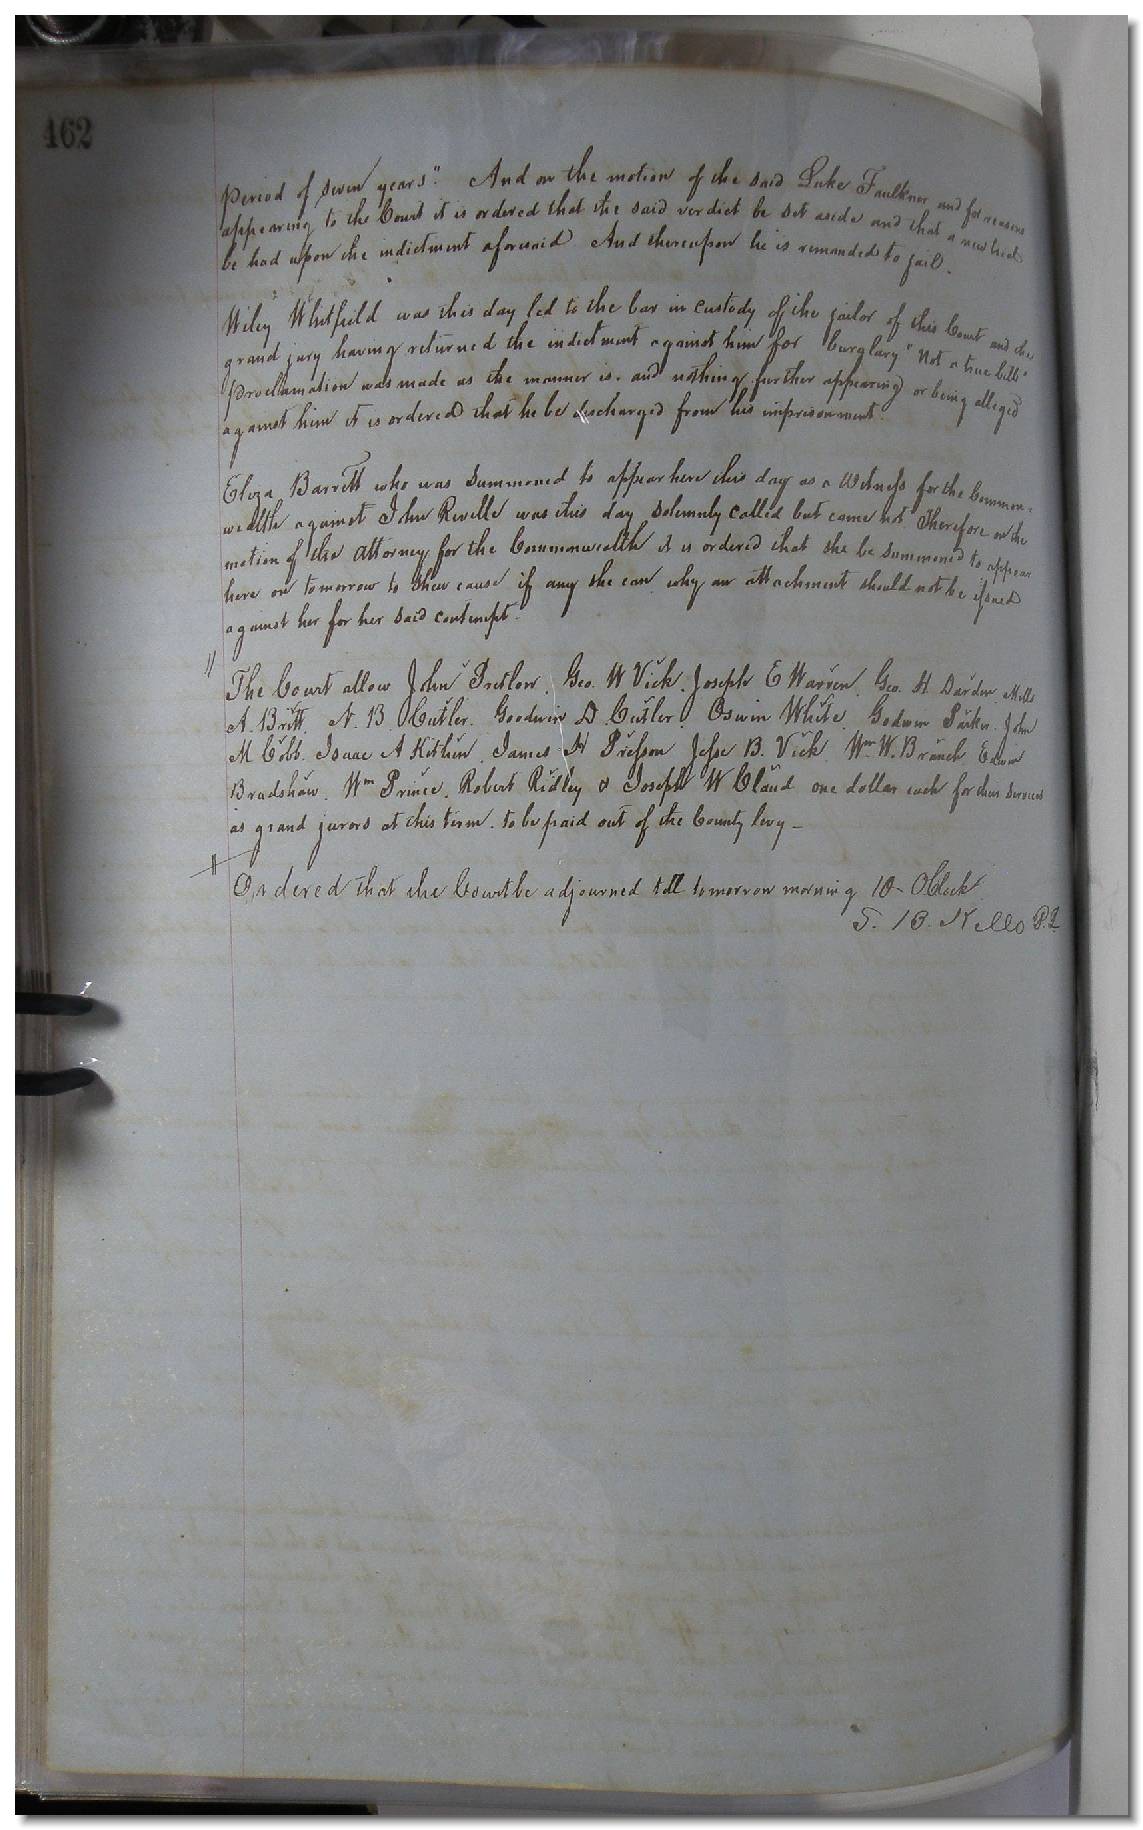 462
period of seven years". And on the motion of the said Luke Faulkner and for reasons
appearing to the Court it is ordered that the said verdict be set aside and that a new trial
be had upon the indictment aforesaid. And thereupon he is remanded to jail.
Wiley Whitfield was this day led to the bar in custody of the jailor of this Court and the
grand jury having returned the indictment against him for burglary "Not a true bill"
Proclamation was made as the manner is. and nothing further appearing or being alleged
against him it is ordered that he be discharged from his imprisonment.
Eliza Barrett who was summoned to appear here this day as a Witness for the Common-
wealth against John Reville was this day solemnly called but came not Therefore on the
motion of the attorney for the Commonwealth it is ordered that she be summoned to appear
here on tomorrow to shew cause if any she can why an attachment should not be issued
against her for her said contempt.
The Court allow John Pretlow, Geo. W Vick, Joseph E Warren, Geo. H. Darden, Mills
A. Britt, N. B. Cutler, Goodwin D Cutler, Oswin White, Godwin Parker, John
M Cobb, Isaac A Kitchin, James H Presson Jesse B. Vick, Wm W. Branch Edwin
Bradshaw, Wm Prince, Robert Ridley & Joseph W Claud one dollar each for their services
as grand jurors at this term. to be paid out of the County levy -
Ordered that the Court be adjourned till tomorrow morning 10 - OClock
S. B. Kello P.J.